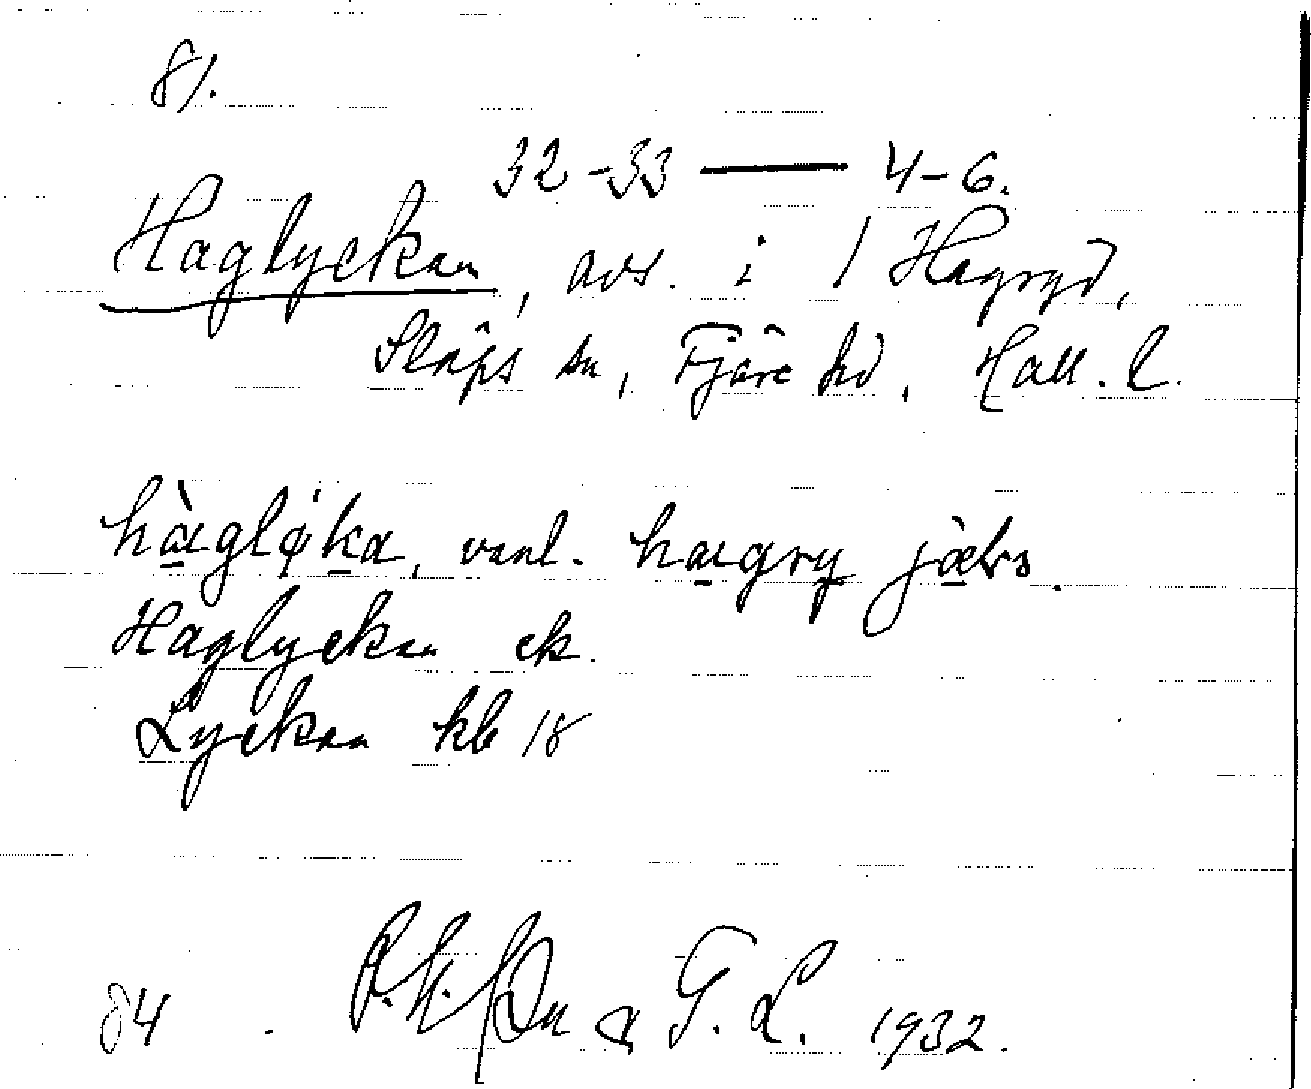 81.
32-33 — 4-6.
Haglyckan, avs. i 1 Hagryd,
Släps sn, Fjäre hd, Hall. l.
hàgløka, vanl. hagry jàbs.
Haglyckan ek.
Lyckan kb 18
84 1932.